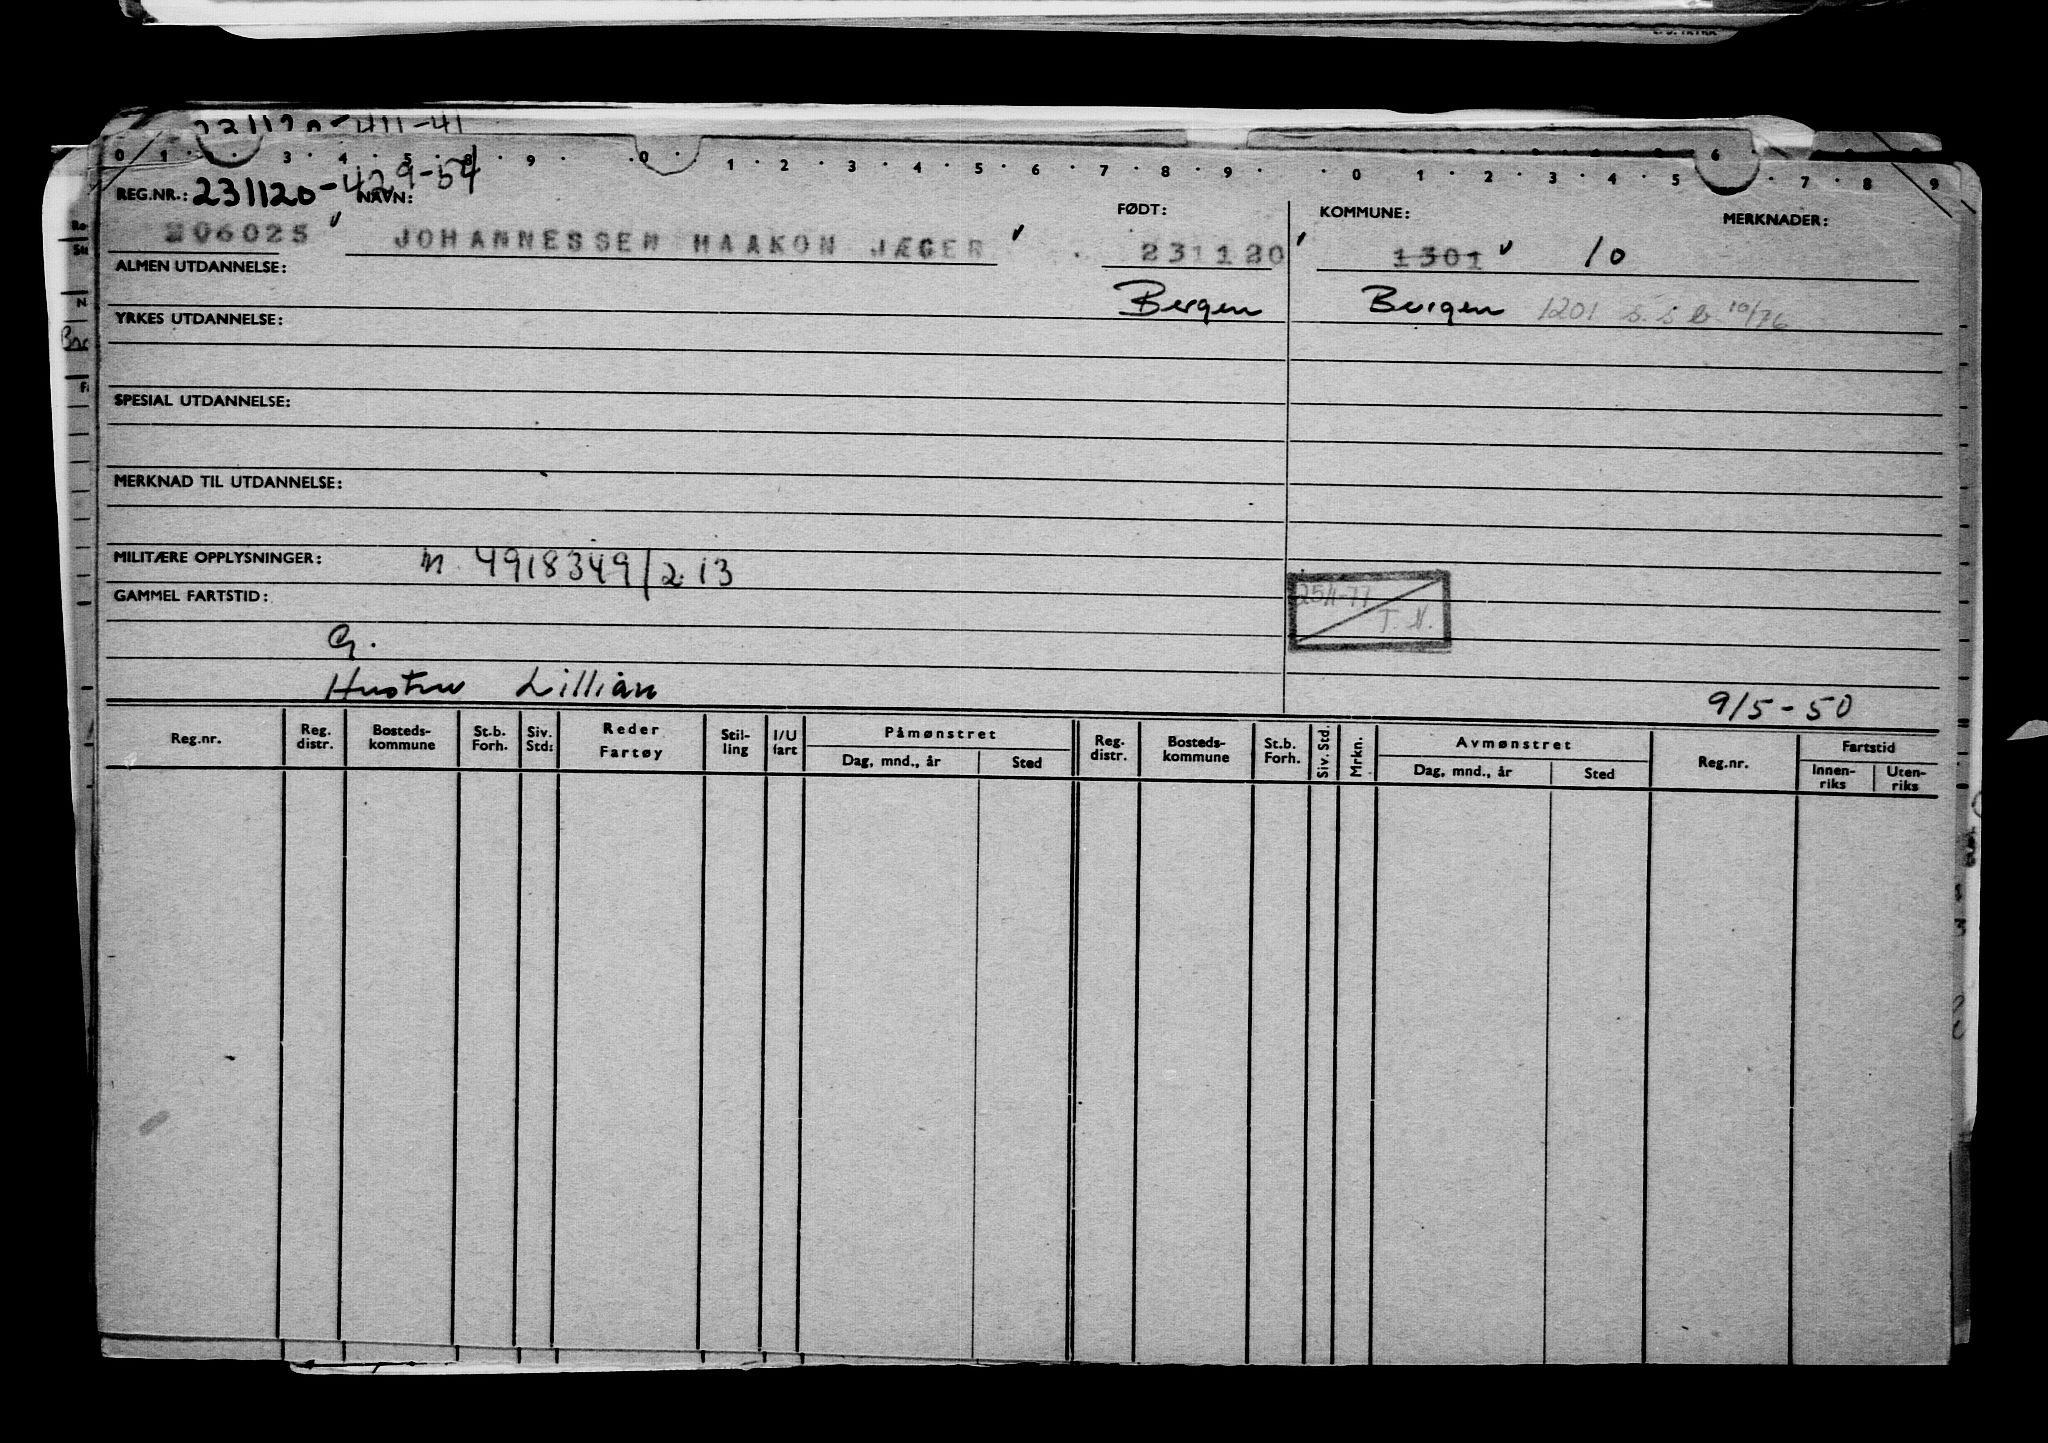 231120-411-41
0 1 · · 3 · 4 · 5 · 8 · 9 · 0 · 1 · 2 · 3 · 4 · 5 · 6 · 7 · 8 · 9 · · 0 · 1 · 2 · 3 · 4 · 5 6 · 7 · 8 · 9
REG.NR.: 231120-429-54 NAVN: FØDT: KOMMUNE: MERKNADER:
206025 JOHANNESSEN HAAKON JÆGER 231120 1301 10
ALMEN UTDANNELSE:
Bergen Bergen 1201 s.s.b. 10/76
YRKES UTDANNELSE:
SPESIAL UTDANNELSE:
MERKNAD TIL UTDANNELSE:
MILITÆRE OPPLYSNINGER: M. 4918349/2 13
GAMMEL FARTSTID:
25/1-77
T. N.
G.
Hustru Lillian
9/5-50
Reg.nr. Reg. distr. Bosteds-kommune St.b. Forh. Siv. Std: Reder Fartøy Stil-ling I/U fart Påmønstret Dag, mnd., år Sted Reg. distr. Bosteds-kommune St.b. Forh. Siv. Std. Mrkn. Avmønstret Dag, mnd., år Sted Reg.nr. Fartstid Innen-riks Uten-riks